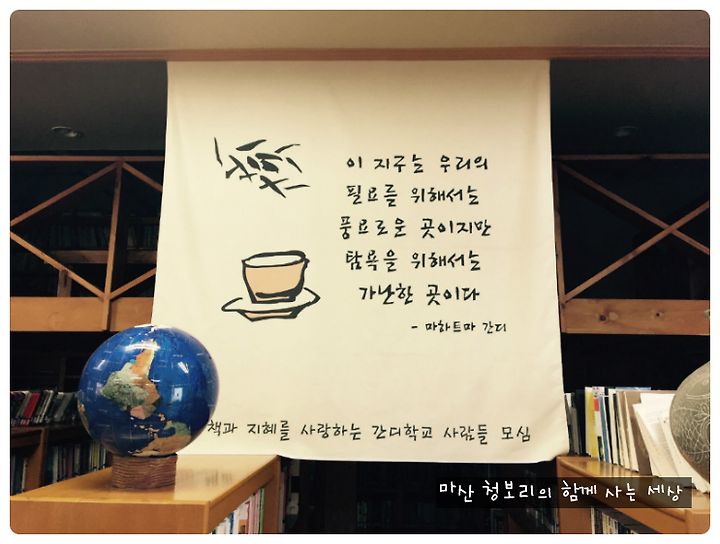 이 지구는 우리의
필요를 위해서는
풍요로운 곳이지만
탐욕을 위해서는
가난한 곳이다
- 마하트마 간디
책과 지혜를 사랑하는 간디학교 사람들 모심
마산 청보리의 함께 사는 세상